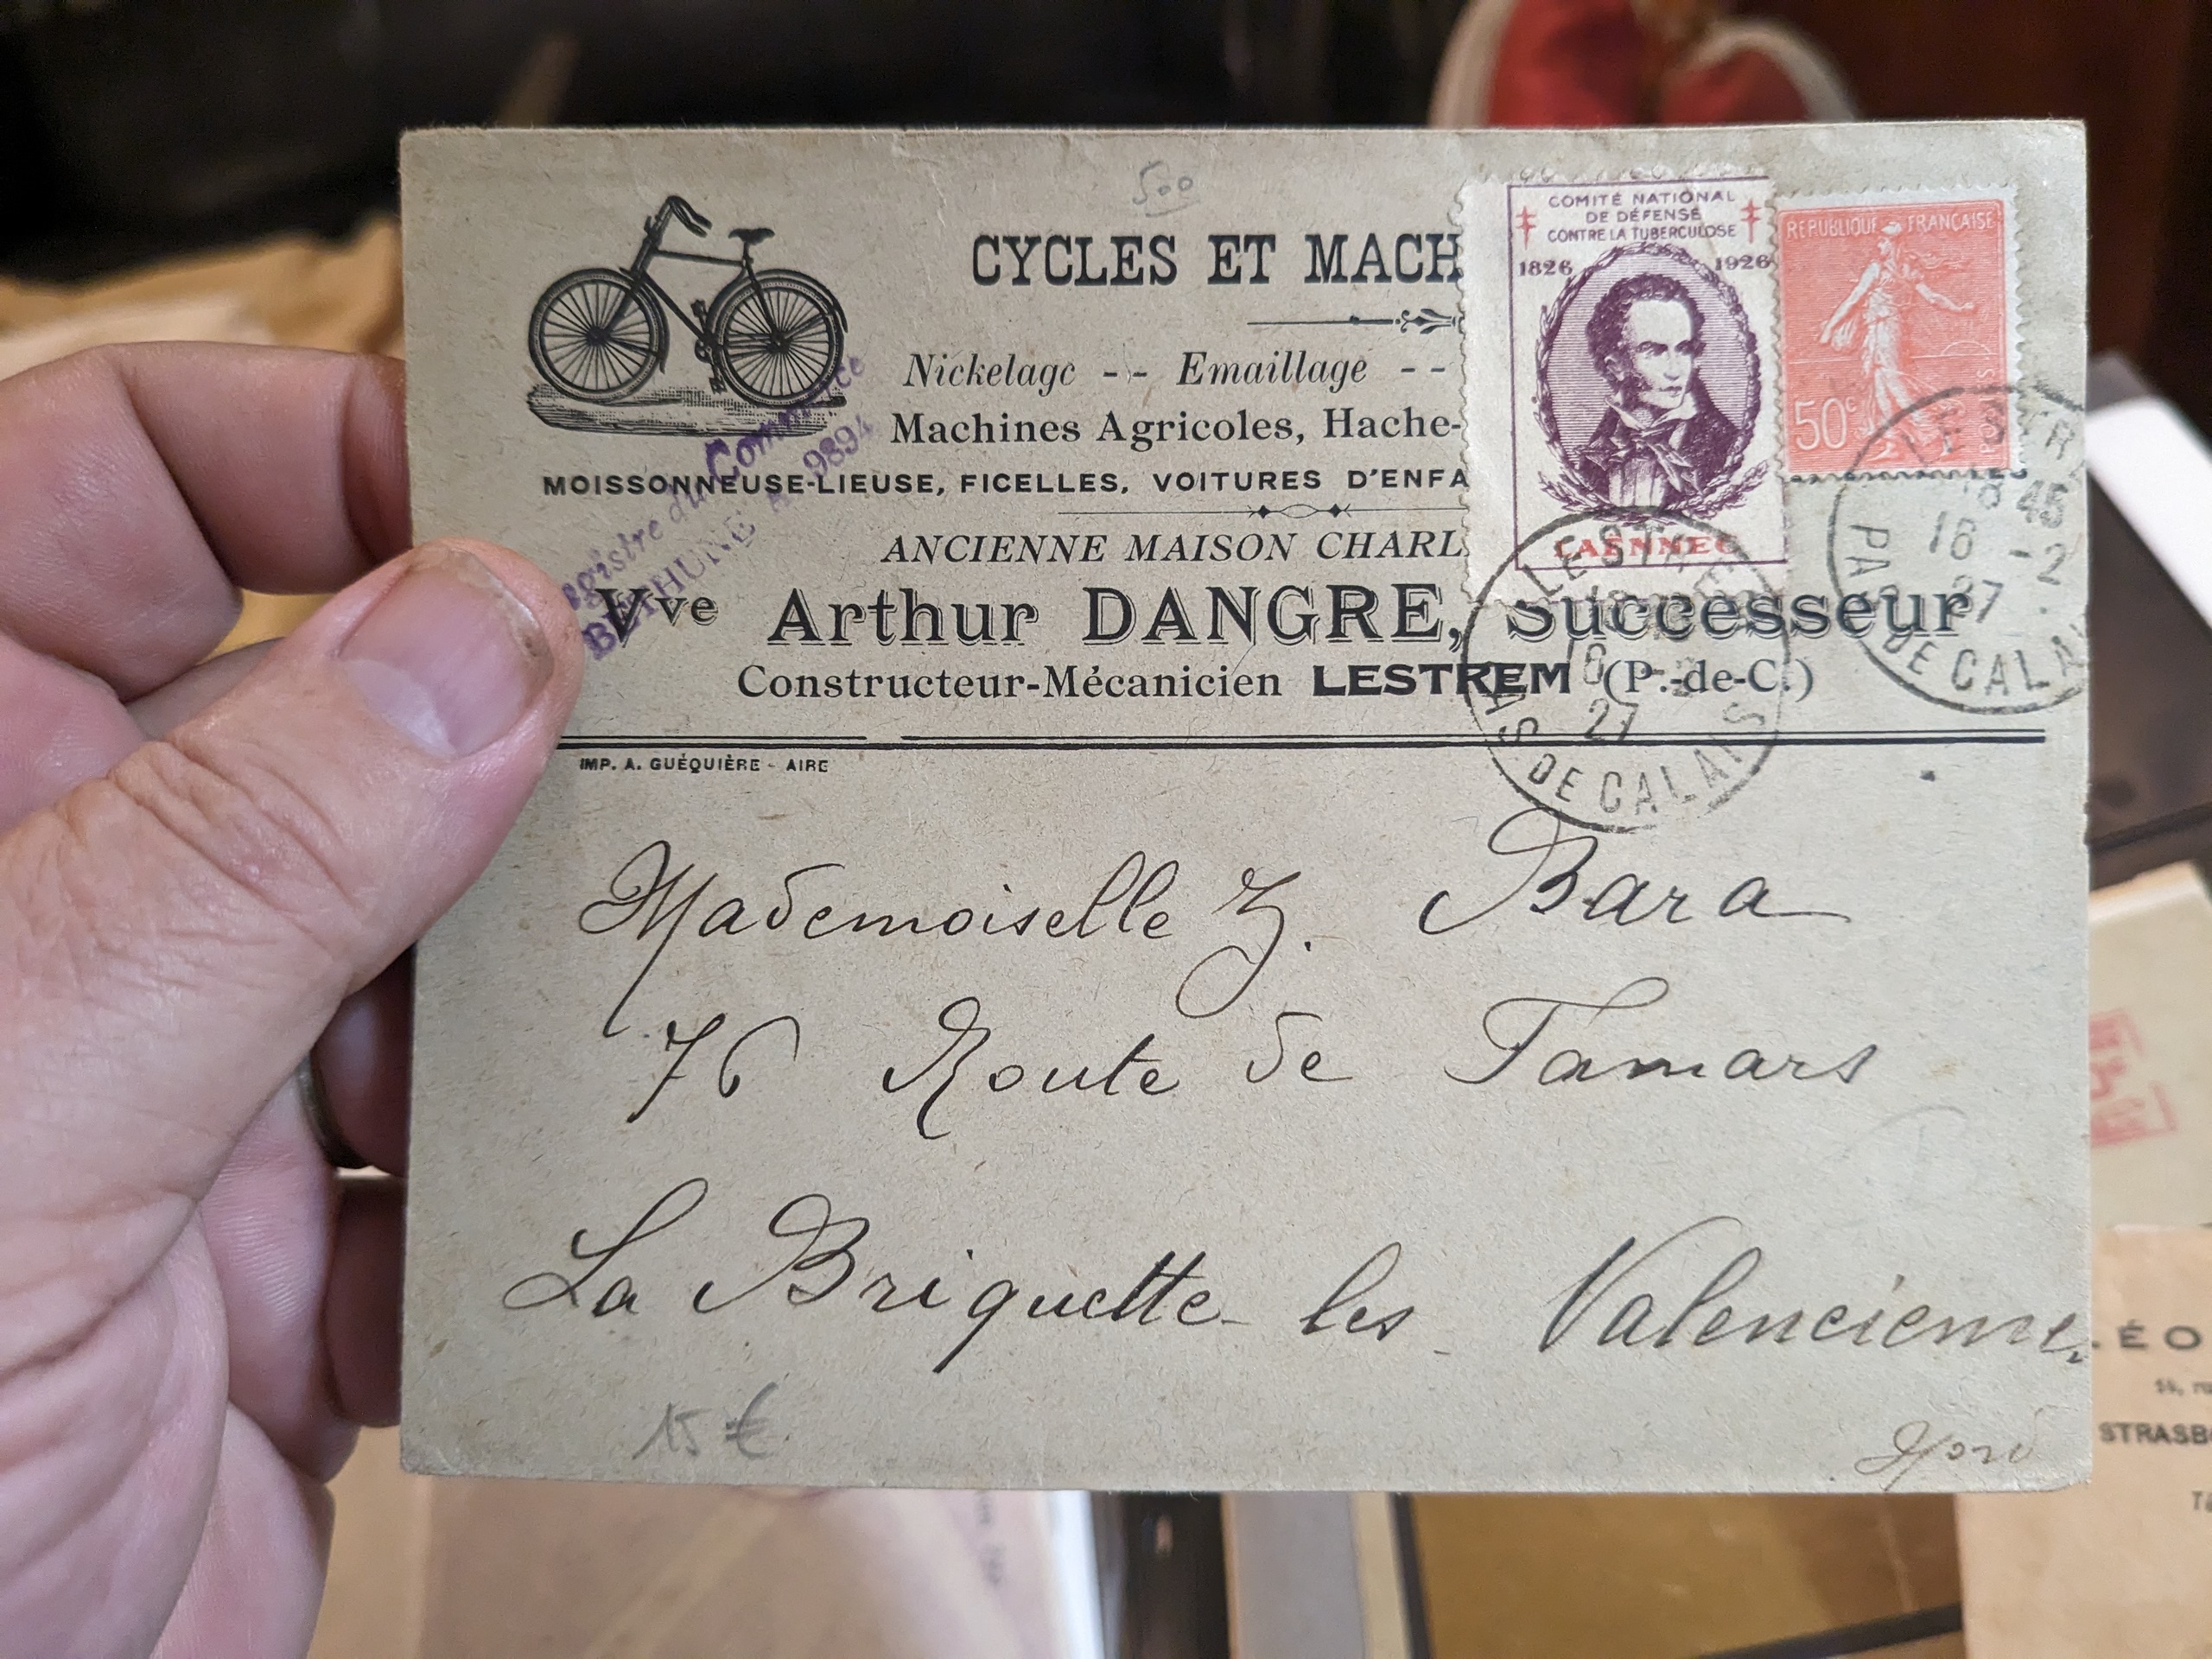 500
CYCLES ET MACH
COMITÉ NATIONAL
DE DÉFENSE
CONTRE LA TUBERCULOSE
1826 1926
LAENNEC
REPUBLIQUE FRANÇAISE
50c
POSTES
Nickelage -- Emaillage --
Machines Agricoles, Hache-
MOISSONNEUSE-LIEUSE, FICELLES, VOITURES D'ENFA
ANCIENNE MAISON CHARL
Vve Arthur DANGRE, Successeur
Constructeur-Mécanicien LESTREM (P.-de-C.)
gistre du Commerce
BETHUNE A 9894
LESTREM
16
27
PAS DE CALAIS
LESTR
18 45
16 -2
27
PAS DE CALAI
IMP. A. GUÉQUIÈRE - AIRE
Mademoiselle Z. Bara
76 Route de Famars
La Briquette les Valenciennes
Nord
15 €
ÉO
STRASB